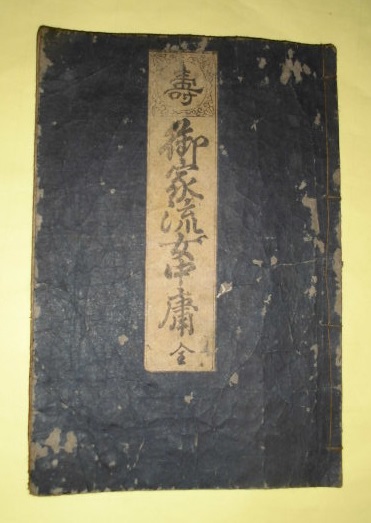 壽
御家流女中庸
全